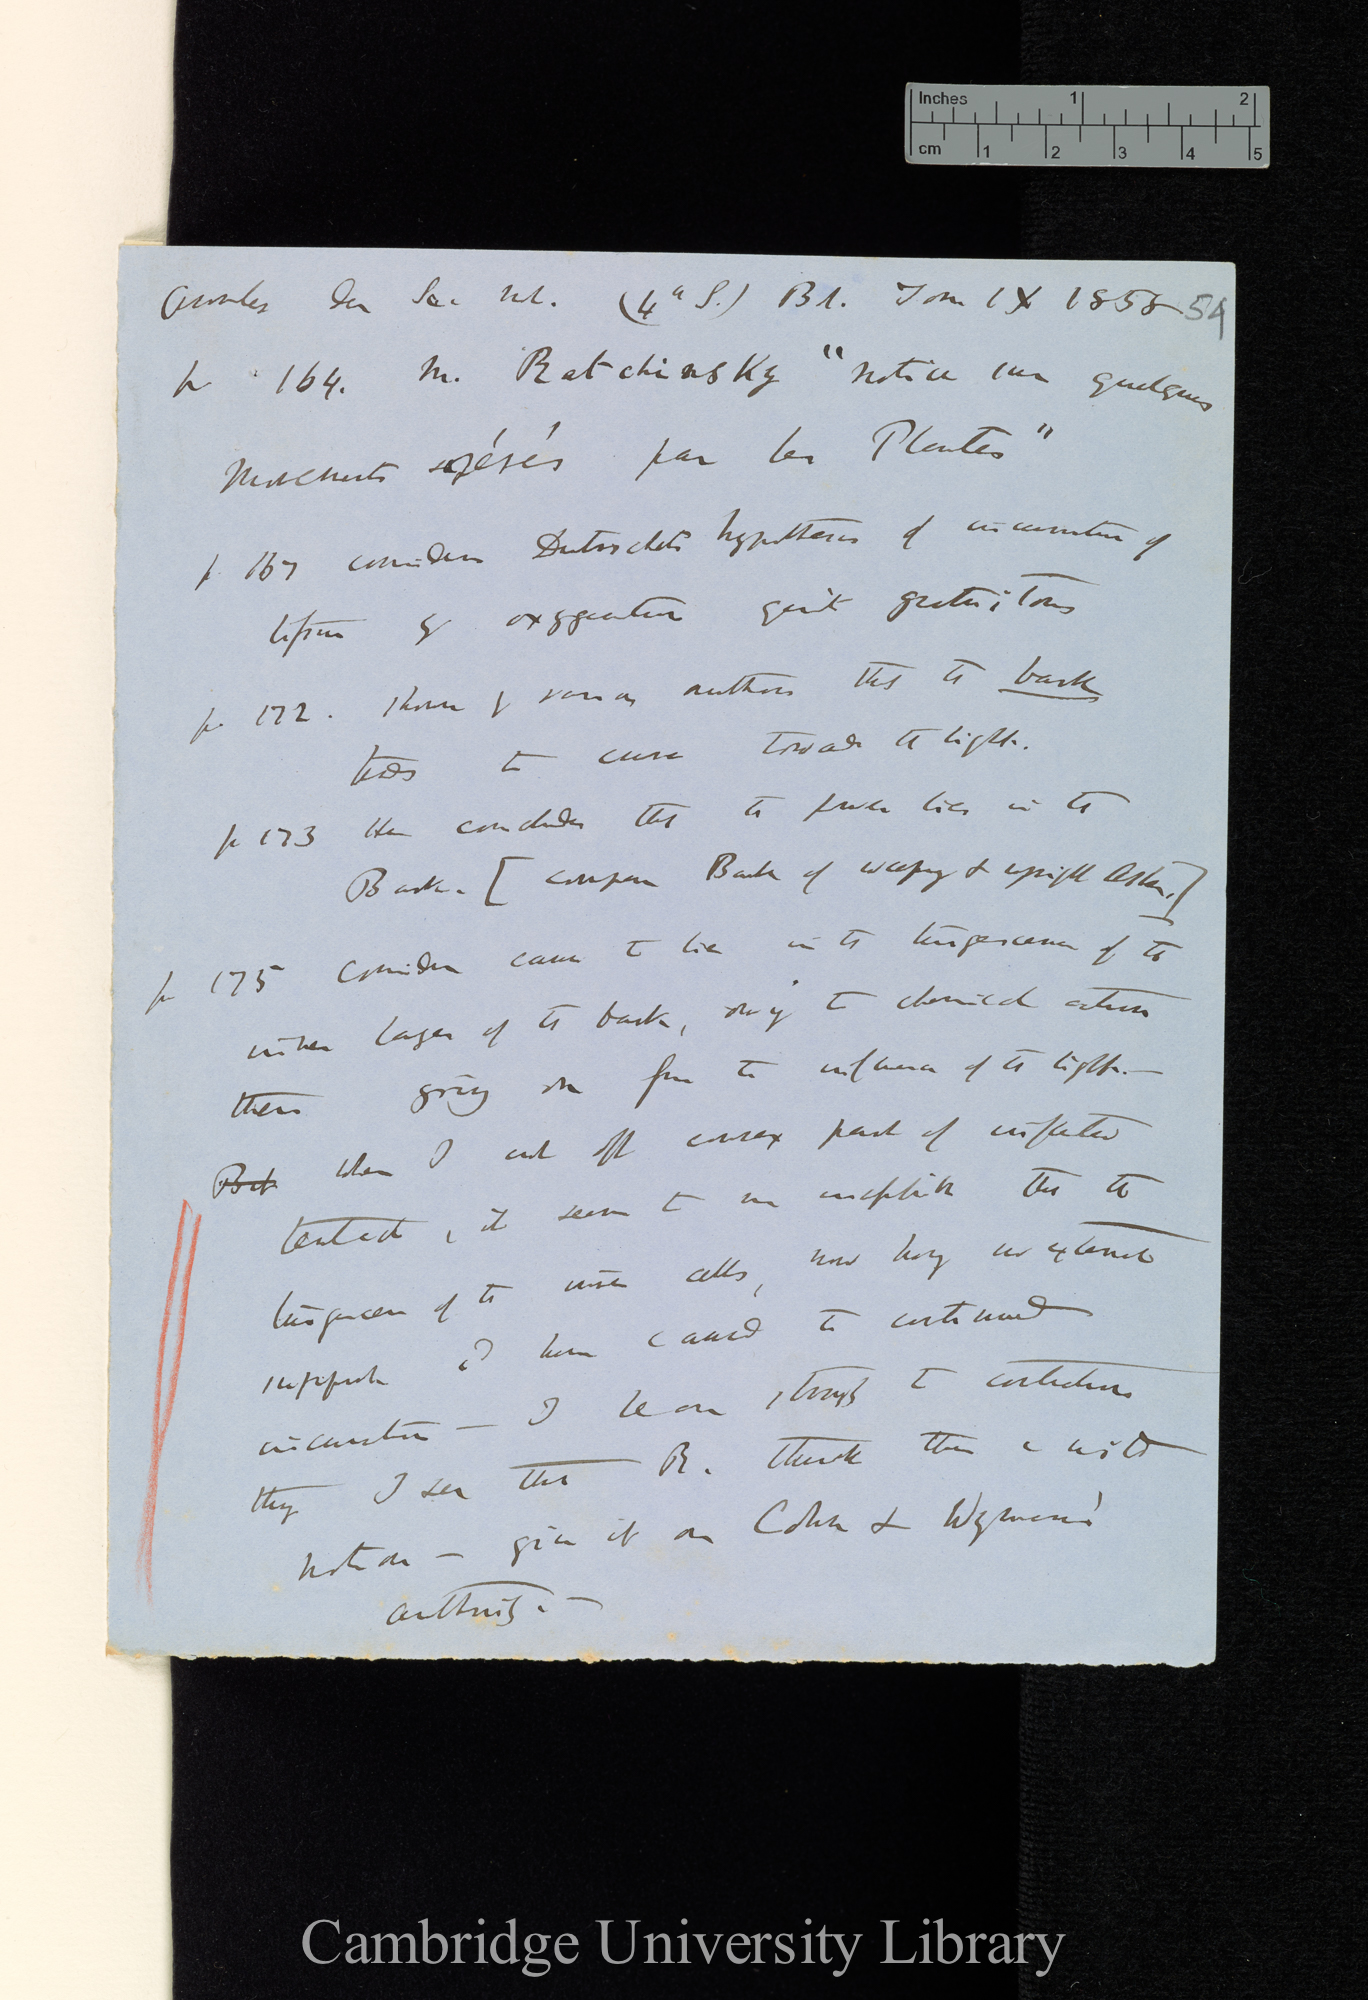 Inches 1 2
cm 1 2 3 4 5
Annales des Sci. Nat. (4a S.) Bot. Tom IX 1858 54
p 164. M. Ratchinsky "notice sur quelques
Movements opérés par les Plantes"
p. 167 considers Dutrochets hypothesis of incurvation of
tissue by oxygenation quite gratuitous
p. 172. Shown by various authors that the bark
tends to curve towards the light.
p 173 He concludes that the power lies in the
Bark. [compare Bark of weeping & upright Ashes.]
p 175 Considers cause to lie in the turgescence of the
inner layer of the bark, owing to chemical action
there going on from the influence of the light.—
But when I cut off convex part of inflected
tentacle, it seems to me inexplicable that the
turgescence of the inner cells, now having no external
support, have caused the continued
incurvation — I lean strongly to contraction
theory I see that R. thinks this a wild
notion — give it on Cohn & Wyman's
authority.—
Cambridge University Library